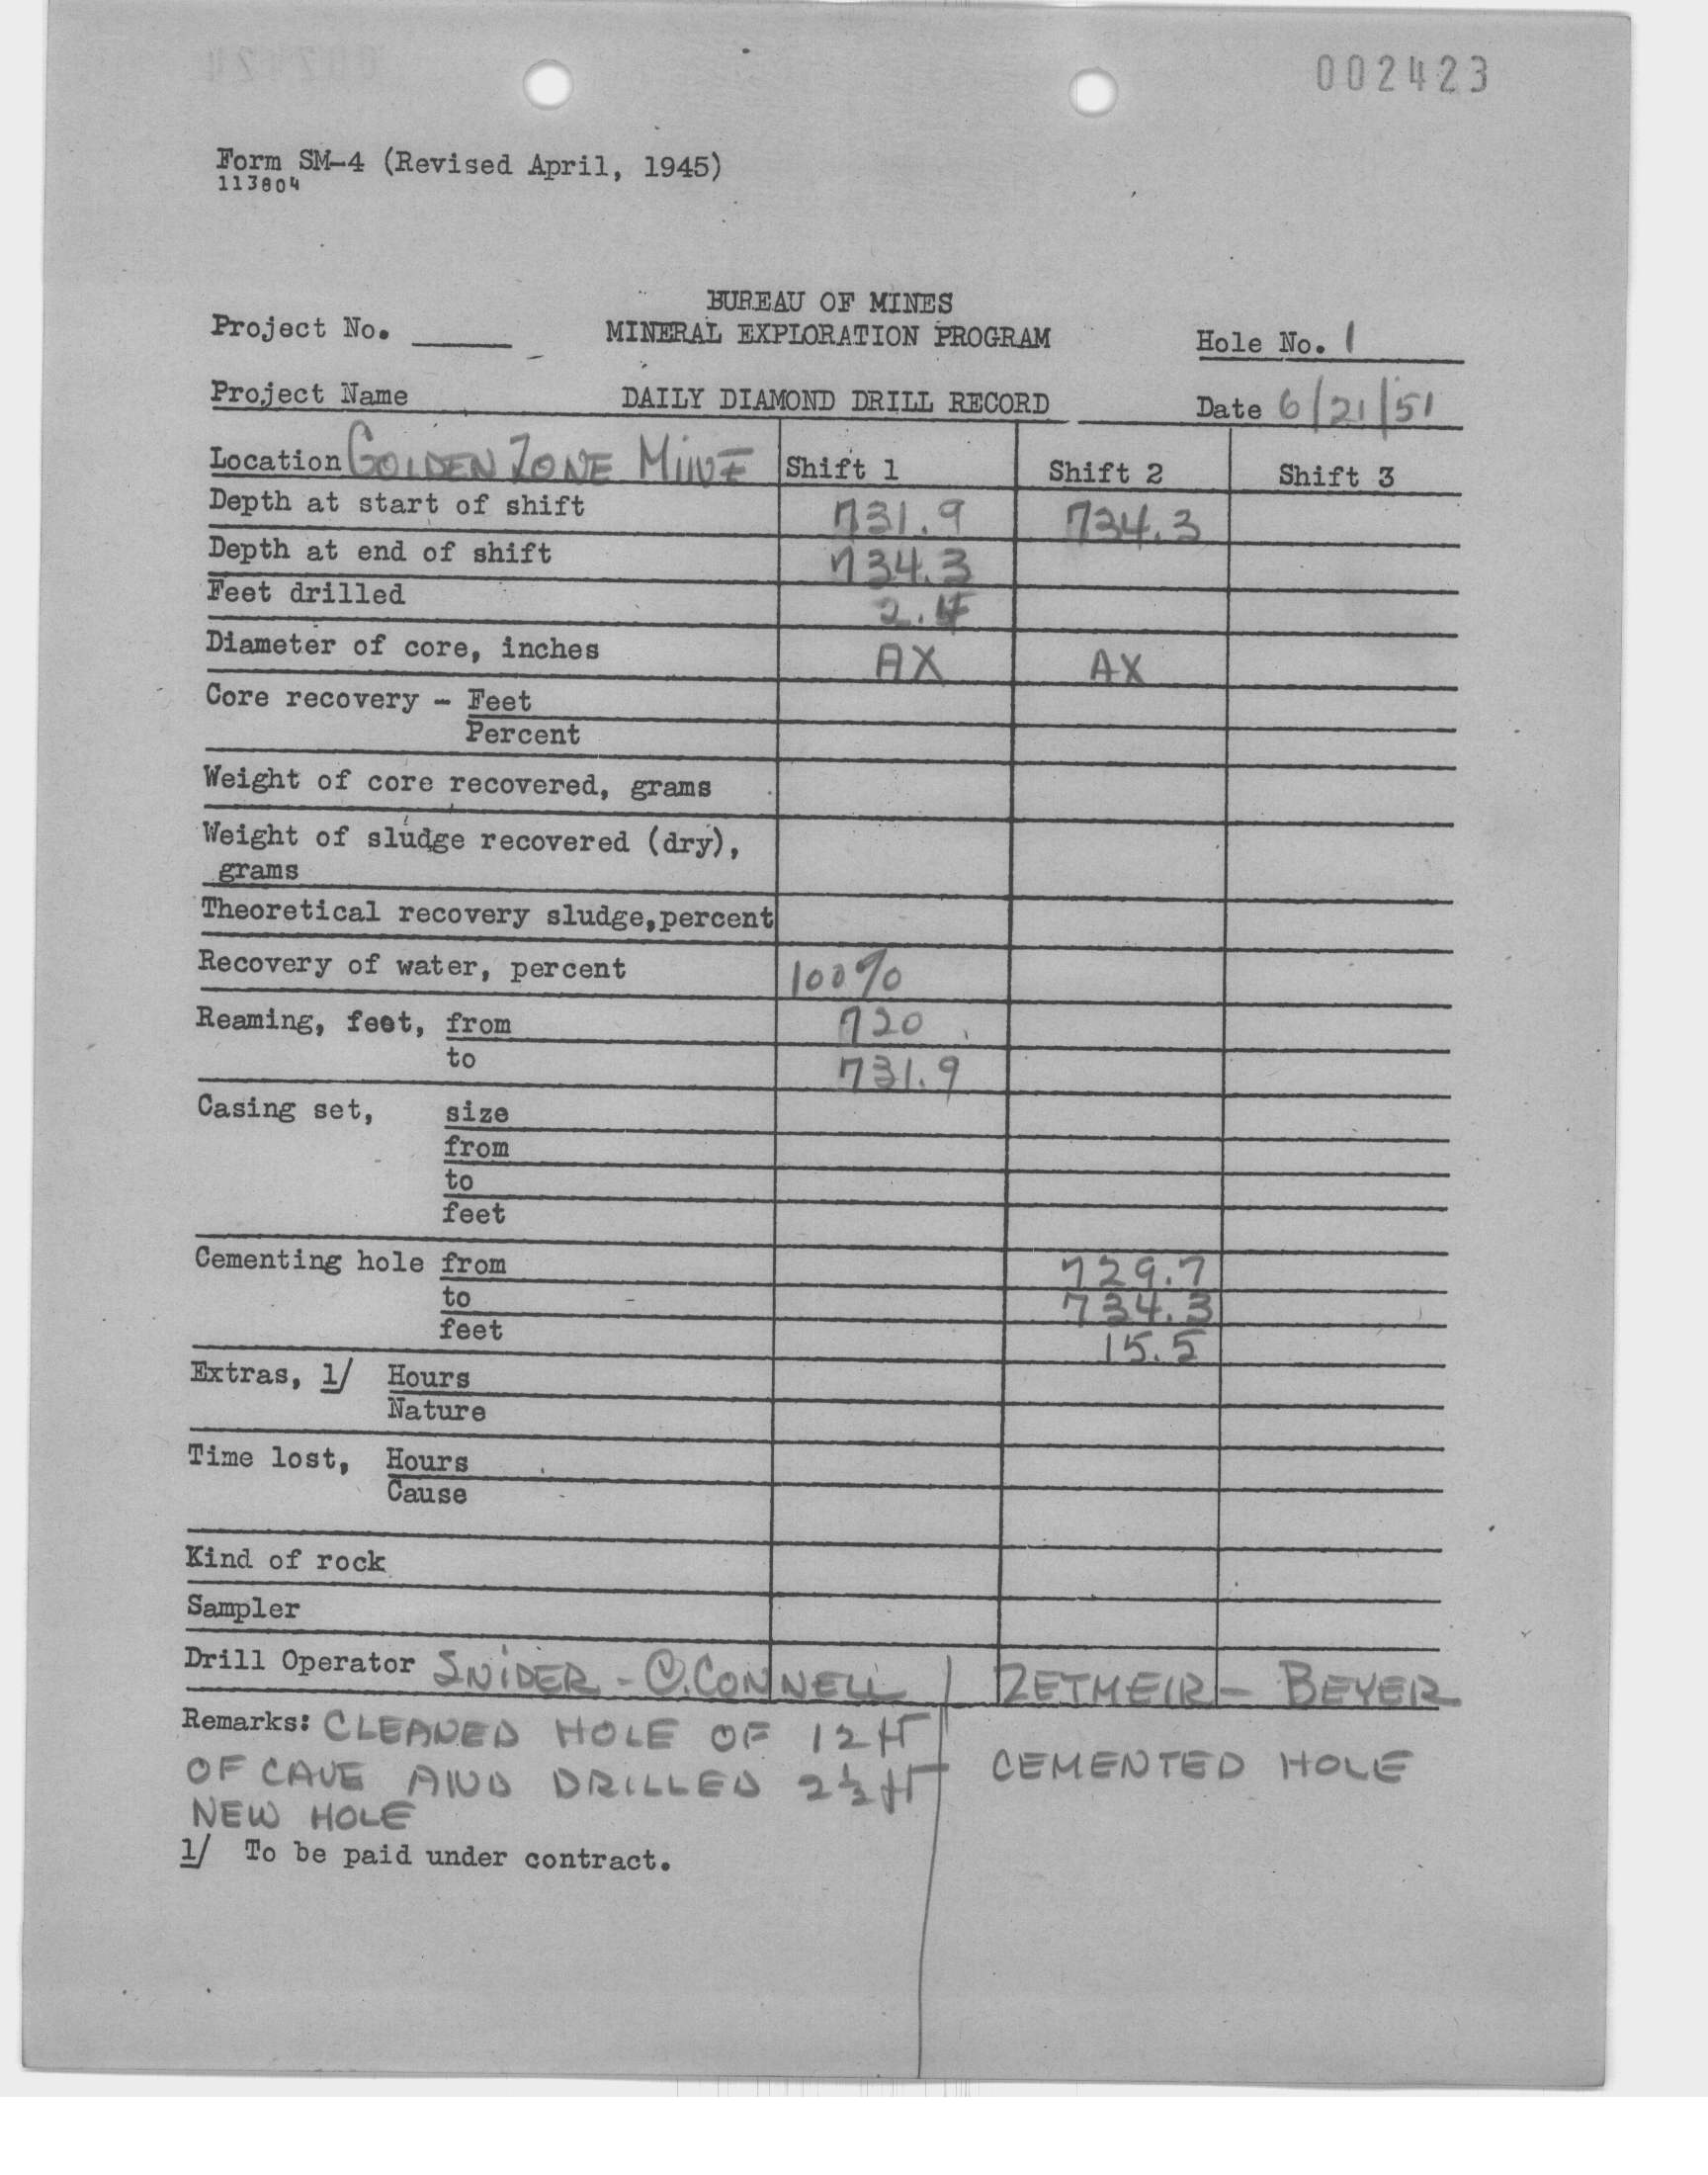 002423
Form SM-4 (Revised April, 1945)
113804
BUREAU OF MINES
Project No. MINERAL EXPLORATION PROGRAM Hole No. 1
Project Name DAILY DIAMOND DRILL RECORD Date 6/21/51
Location GOLDEN ZONE MINE Shift 1 Shift 2 Shift 3
Depth at start of shift 731.9 734.3
Depth at end of shift 734.3
Feet drilled 2.4
Diameter of core, inches AX AX
Core recovery - Feet
Percent
Weight of core recovered, grams
Weight of sludge recovered (dry),
grams
Theoretical recovery sludge,percent
Recovery of water, percent 100%
Reaming, feet, from 720
to 731.9
Casing set, size
from
to
feet
Cementing hole from 729.7
to 734.3
feet 15.5
Extras, 1/ Hours
Nature
Time lost, Hours
Cause
Kind of rock
Sampler
Drill Operator SNIDER - O.CONNELL / ZETMEIR - BEYER
Remarks: CLEANED HOLE OF 12 FT
OF CAVE AND DRILLED 2½ FT CEMENTED HOLE
NEW HOLE
1/ To be paid under contract.